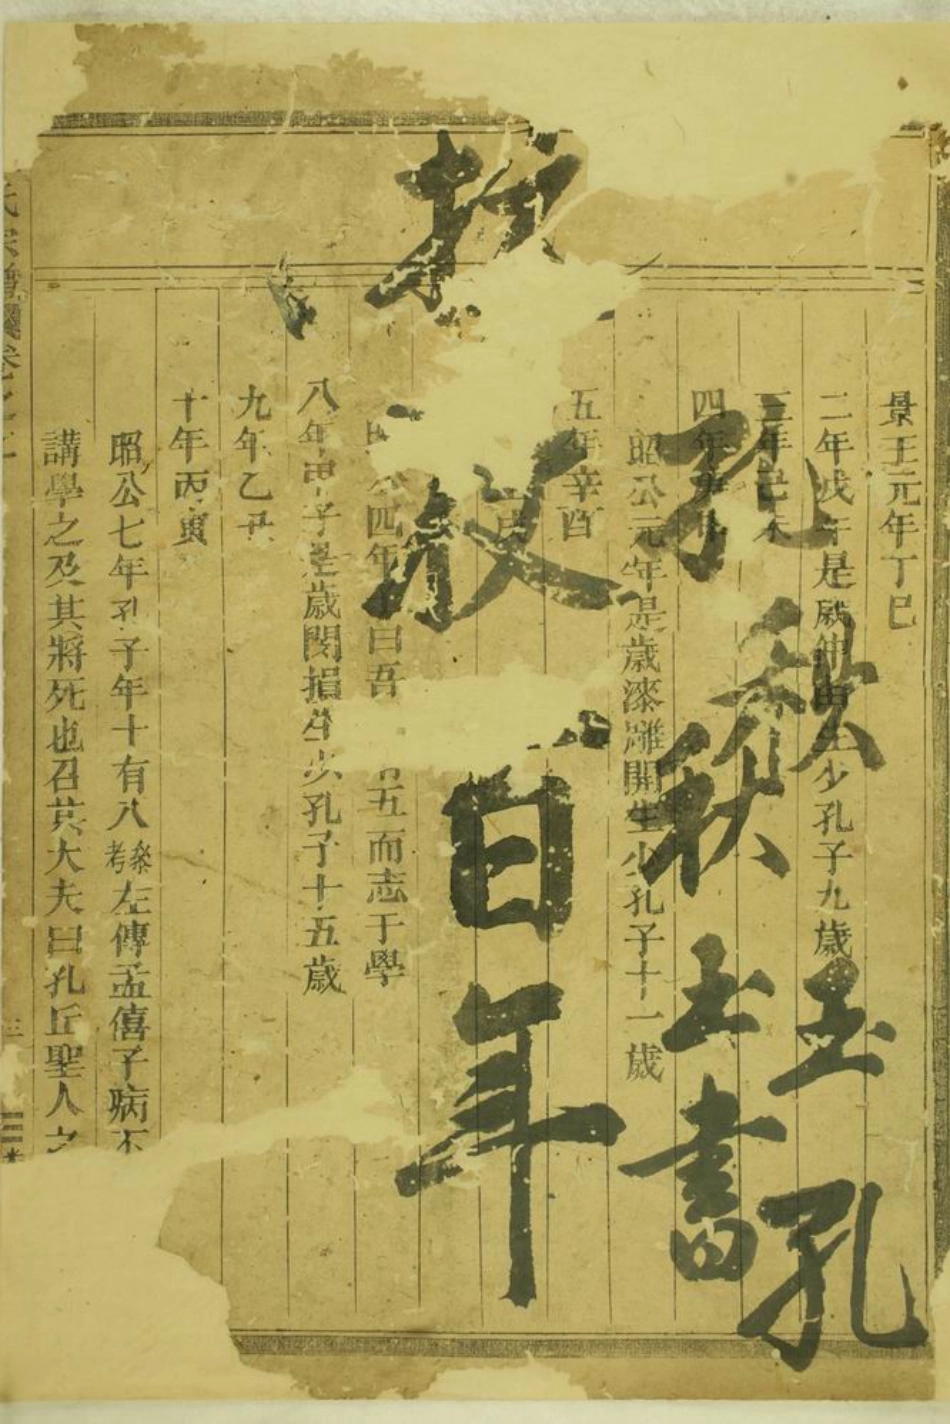 景王元年丁巳
二年戊午是歲仲由生少孔子九歲
三年己未
四年庚申
昭公元年是歲漆雕開生少孔子十一歲
五年辛酉
戌
四年 曰吾 五而志于學
八年甲子是歲閔損生少孔子十五歲
九年乙丑
十年丙寅
昭公七年孔子年十有八叅考左傳孟僖子病不
講學之及其將死也召其大夫曰孔丘聖人之
孔秋玉孔
秋玉書
日年